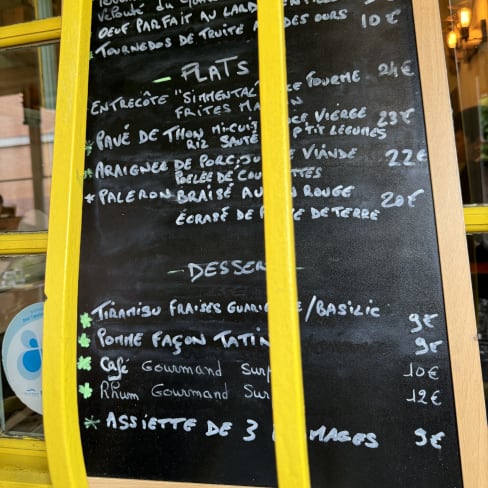 OEUF PARFAIT AU LARD
TOURNEDOS DE TRUITE DES OURS 10€
PLATS
ENTRECÔTE "SIMMENTAL" CE FOURME 24€
FRITES
PAVÉ DE THON MI-CUIT VIERGE 23€
RIZ SAUTÉ P'TIT LÉGUMES
ARAIGNEE DE PORC, JU VIANDE 22€
POELÉE DE COU TTES
PALERON BRAISÉ AU ROUGE 20€
ÉCRASÉ DE TE DE TERRE
- DESSER
TIRAMISU FRAISES GUARI /BASILIC 9€
POMME FAÇON TATIN 9€
Café Gourmand Sur 10€
Rhum Gourmand Sur 12€
ASSIETTE DE 3 MAGES 9€